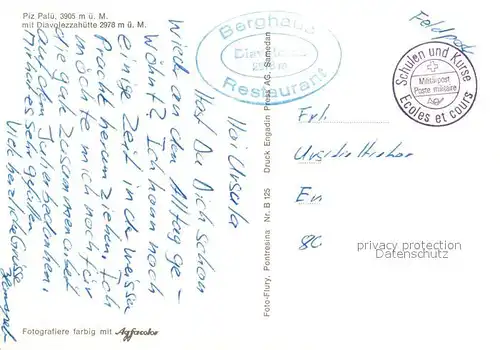 Piz Palü, 3905 m ü. M.
mit Diavolezzahütte 2978 m ü. M.
Hoi Ursula
Hast Du Dich schon
wieder an den Alltag ge-
wöhnt? Ich kann noch
einige Zeit in der weissen
Pracht herum ziehen. Ich
möchte mich noch für
die gak Zusammenarbeit
auf dem Julier bedanken.
mir hat es sehr gefallen.
Viel herzliche Grüsse
Fotografiere farbig mit Agfacolor
Foto-Flury, Pontresina Nr. B 125 Druck Engadin Press AG, Samedan
Berghaus
Diavolezza
Restaurant
Feldpost
Schulen und Kurse
Militärpost
Poste militaire
Ecoles et cours
Frl.
privacy protection
Datenschutz